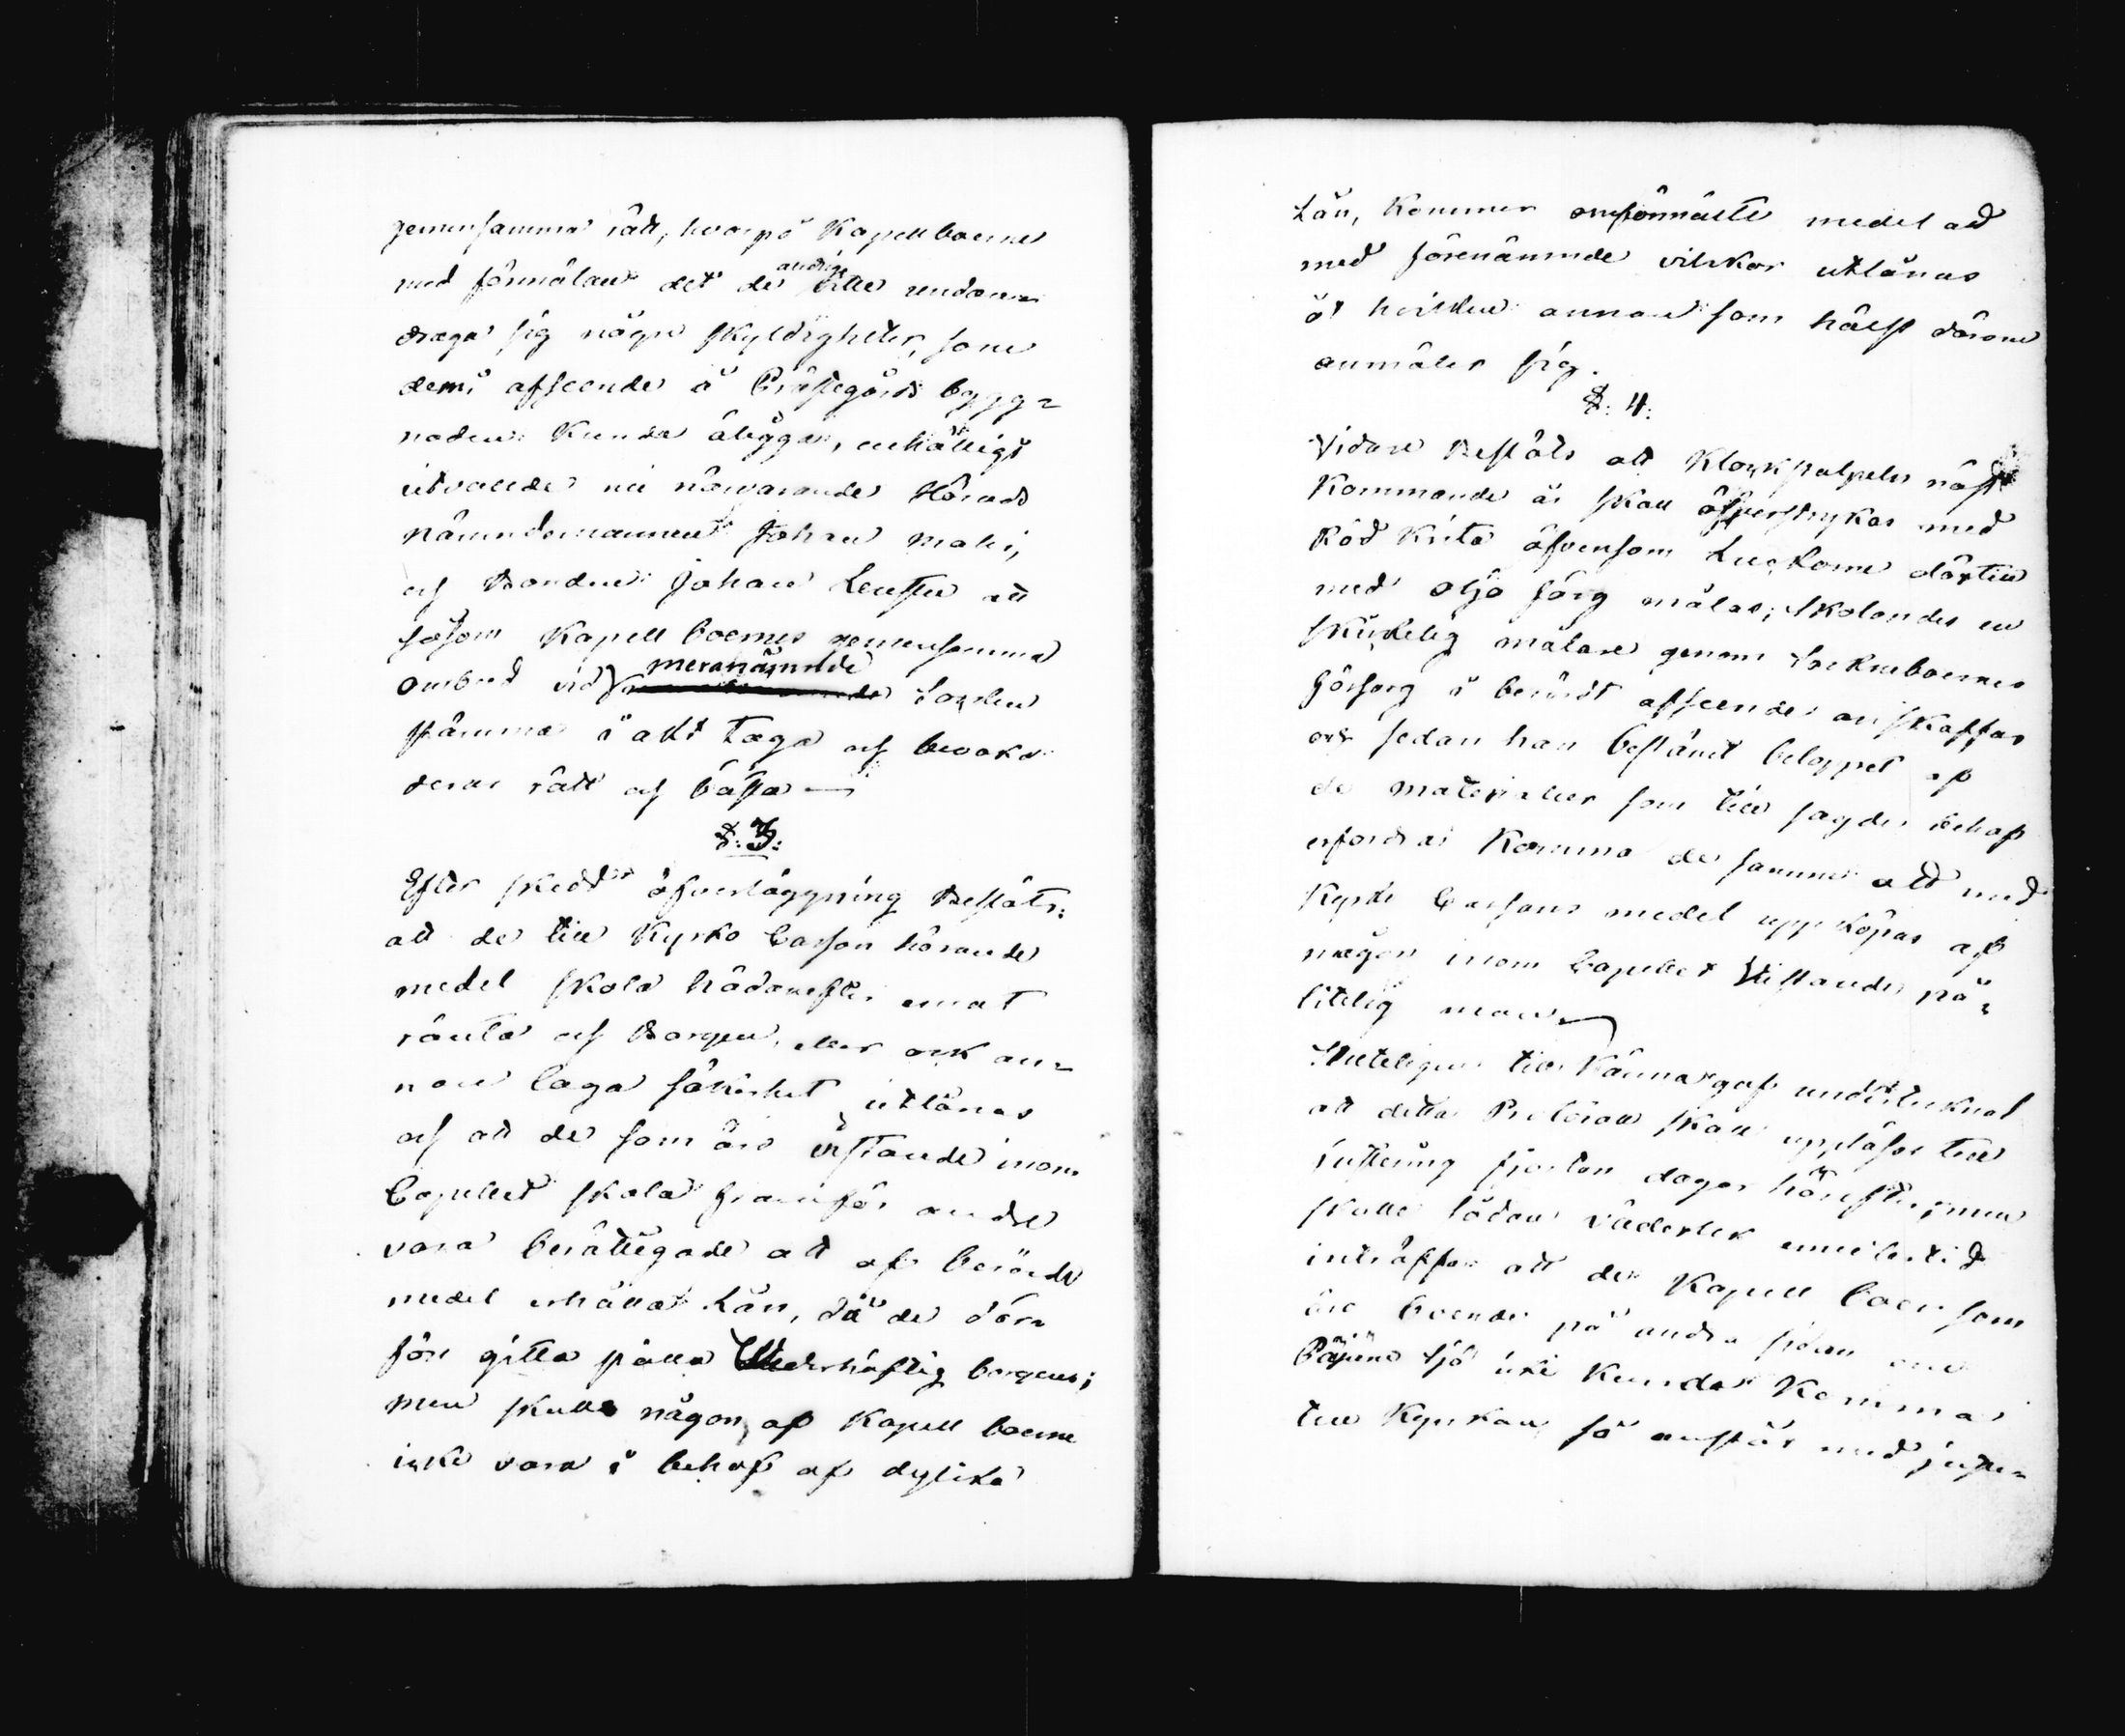 gemensamma rätt, hvarpå Kapellboerne
med förmälan det de aldrig ville undan
draga sig någre skyldigheter, som
dem i afseende å Prästegårds bygg=
naden kunde åligga, enhälligt
utvalde nu närvarande Härads
nämndemannen Johan Mali,
och Bonden Johan Leustu att
såsom Kapell boernes gemensamma
ombud vid meranämnde Socken
stämma i akt taga och bevaka
deras rätt och bästa —
§. 3:
Efter skedd öfverläggning Beslöts:
att de till Kyrko Cassan hörande
medel skola hädanefter emot
ränta och Borgen, eller ock an=
nan laga säkerhet utlånas
och att de som äro bostande inom
Capellet skola framför andre
vara berättigade att af berörde
medel erhålla Lån, då de där=
före gitta ställa Vederhäftig borgen;
men skulle någon af Kapell boerne
icke vara i behof af dylika
Lån, kommer omförmälte medel att
med förenämnde vilkor utlånas
åt hvilken annan som hälst därom
anmäler sig.
§: 4:
Vidare Beslöts att Klockstapeln näst
Kommande år skall öfverstrykas med
Röd Krita äfvensom Luckorne därtill
med olje färg målas; skolandes en
skickelig målare genom Sockneboernes
försorg i berördt afseende anskaffas
och sedan han bestämt beloppet af
de materialier som till sagde behof
erfordras komma de samme att med
Kyrko Cassans medel uppköpas af
någon inom Capellet bostande på=
litelig man —
Sluteligen till känna gaf undertecknad
att detta Protocoll skall uppläsas till
justering fjorton dagar härefter, men
skulle sådan väderlek emellertid
inträffa att de Kapell boer som
äro boende på andra sidan om
Päjäne sjö icke kunde komma
till Kyrkan, så anstår med juste=